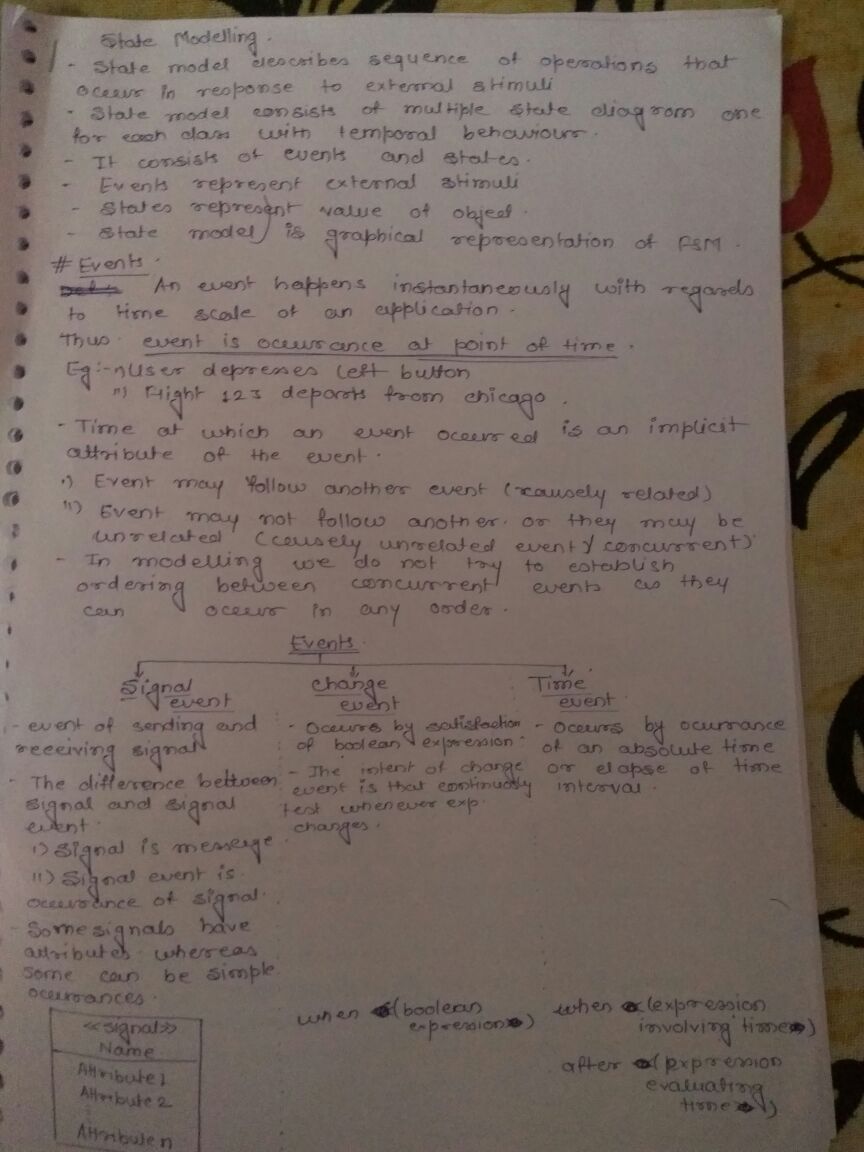 State Modelling.
- State model describes sequence of operations that
occur in response to external stimuli
- State model consists of multiple state diagram one
for each class with temporal behaviour.
- It consists of events and states.
- Events represent external stimuli
- States represent value of object.
- State model is graphical representation of FSM.
# Events.
An event happens instantaneously with regards
to time scale of an application.
Thus event is occurance at point of time.
Eg:- i) User depresses left button
ii) Flight 123 departs from chicago.
- Time at which an event occurred is an implicit
attribute of the event.
i) Event may follow another event (causely related)
ii) Event may not follow another or they may be
unrelated (causely unrelated event / concurrent)
- In modelling we do not try to establish
ordering between concurrent events as they
can occur in any order.
Events.
Signal event
- event of sending and
receiving signal
- The difference between
signal and signal
event.
i) Signal is message
ii) Signal event is
occurance of signal.
- Some signals have
attributes whereas
some can be simple
ocurrances.
<<signal>>
Name
Attribute 1
Attribute 2
Attribute n
change event
- Occurs by satisfaction
of boolean expression.
- The intent of change
event is that continuously
test whenever exp.
changes.
when (boolean
expression)
Time event
- Occurs by ocurrance
of an absolute time
or elapse of time
interval.
when (expression
involving time)
after (expression
evaluating
time)